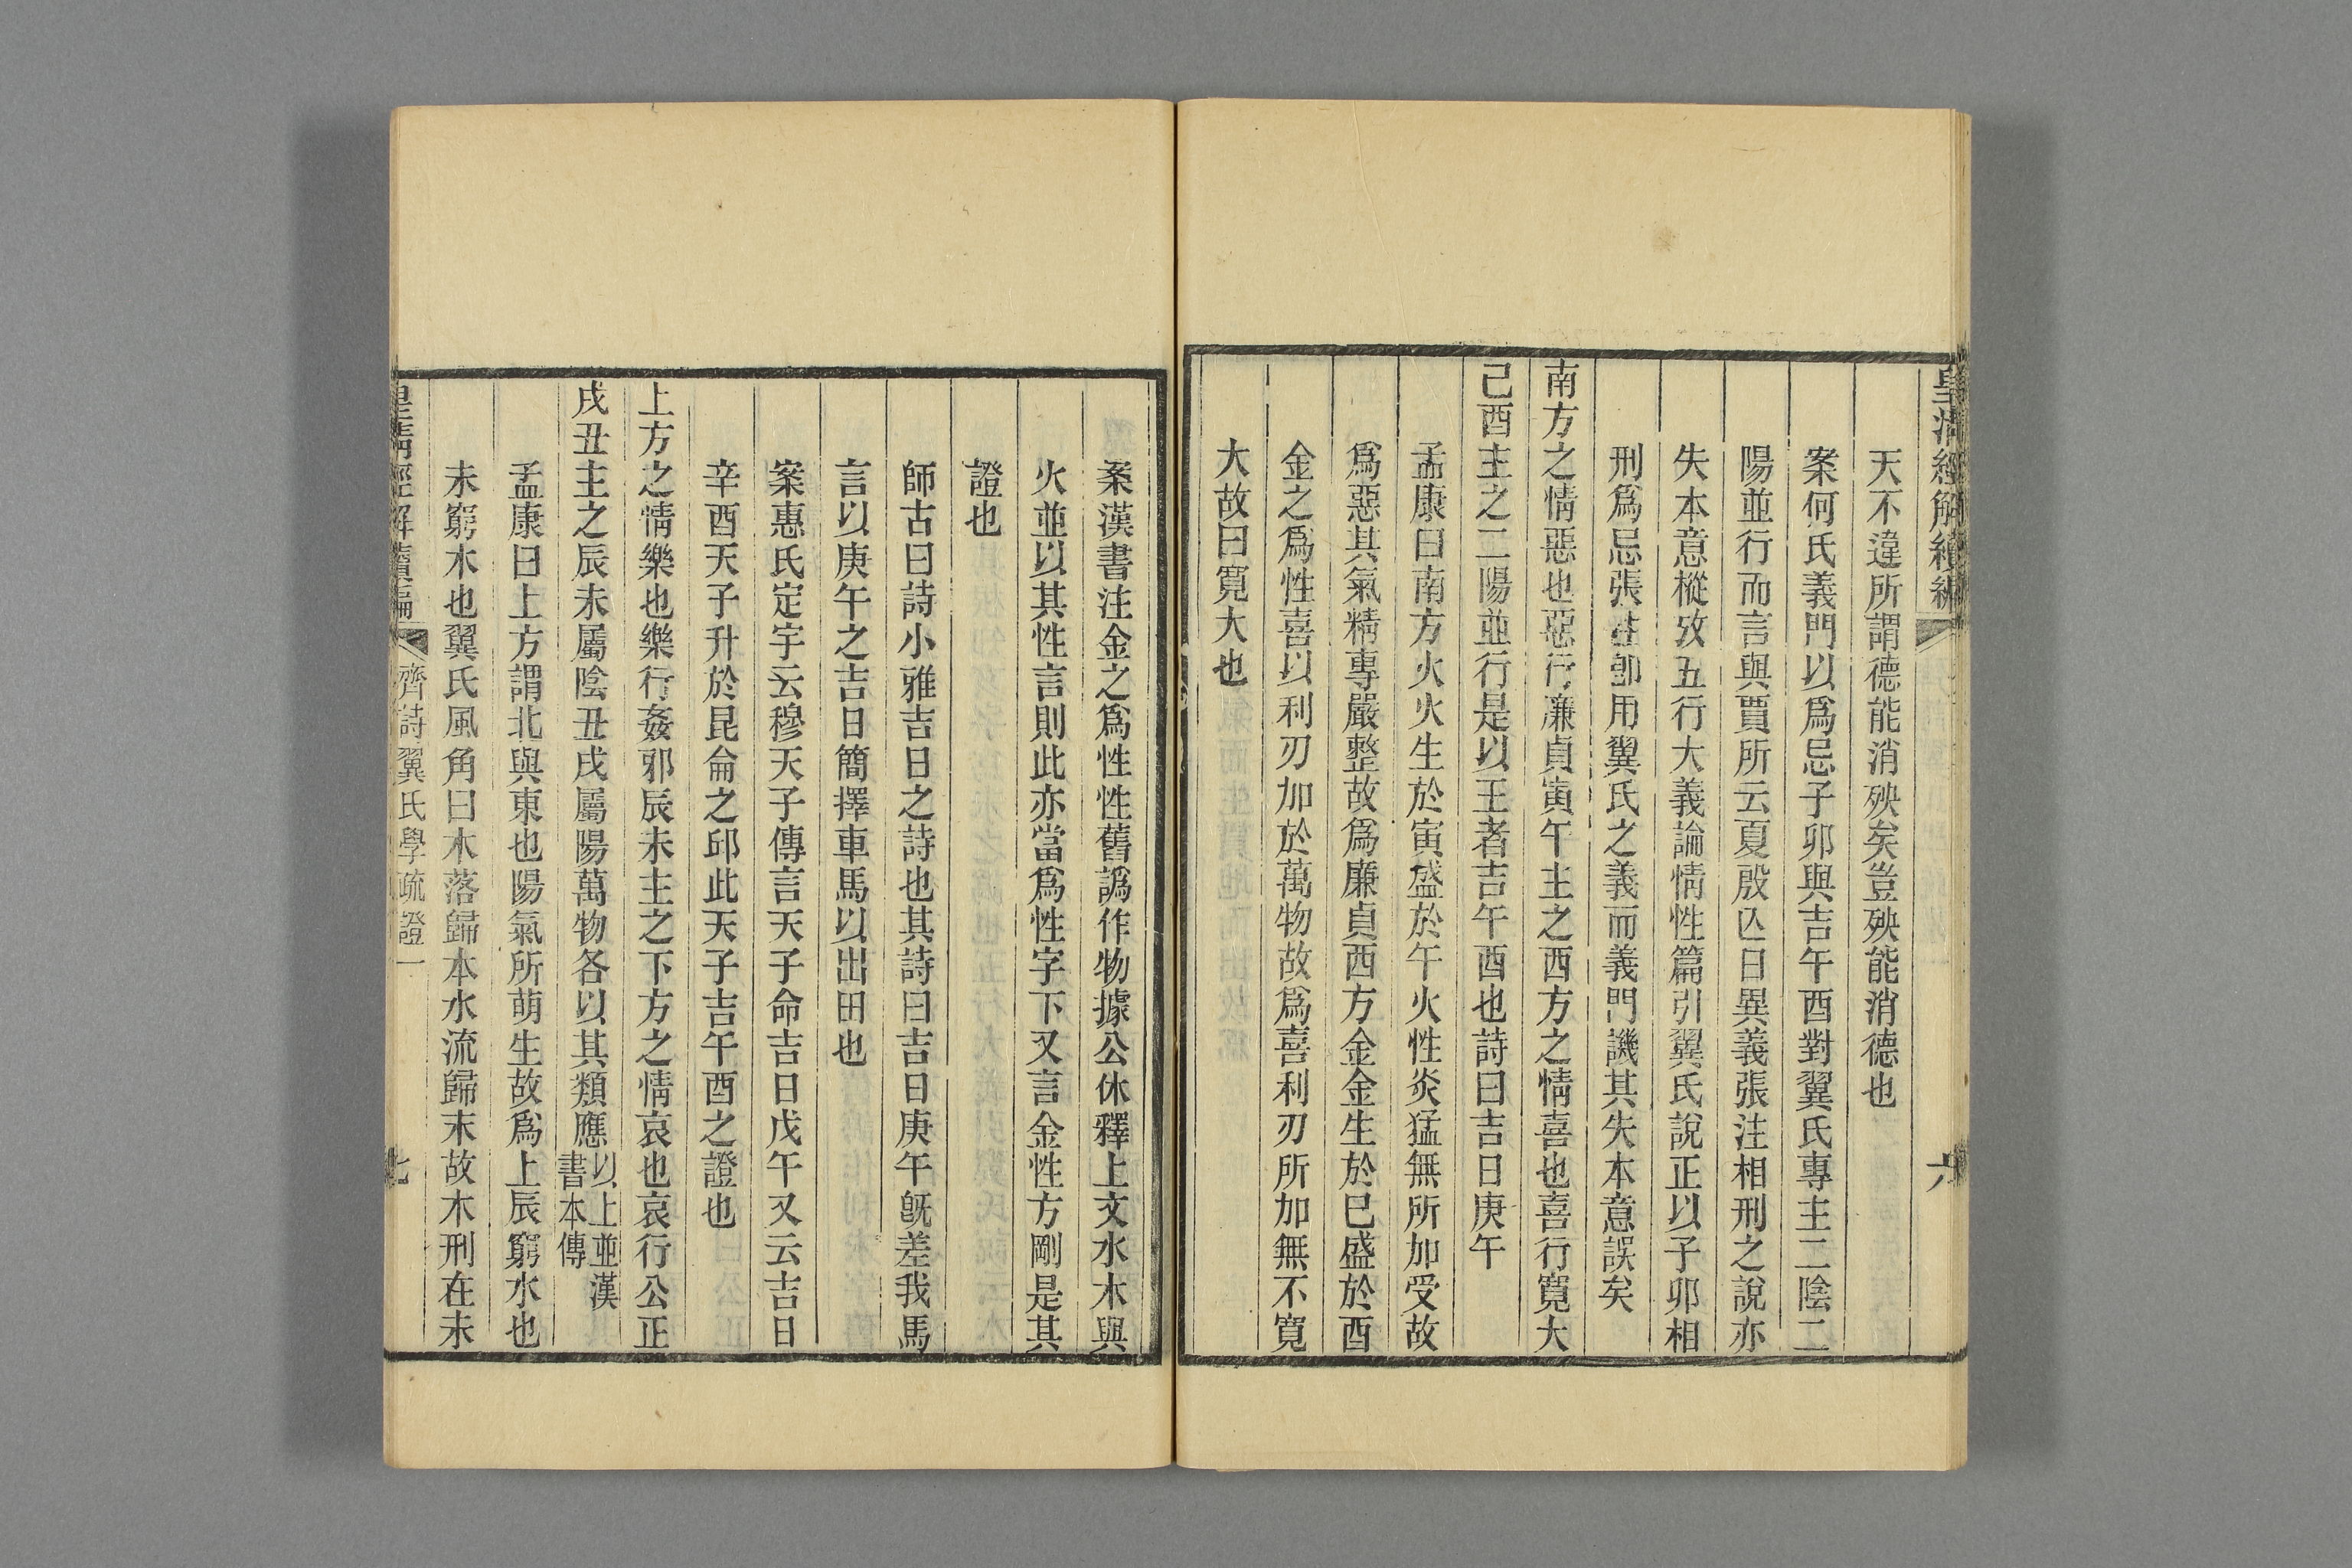 皇清經解續編
六
天不違所謂德能消殃矣豈殃能消德也
案何氏義門以爲忌子卯與吉午酉對翼氏專主二陰二
陽並行而言與賈所云夏殷亾日異義張注相刑之說亦
失本意樅攷五行大義論情性篇引翼氏說正以子卯相
刑爲忌張注卽用翼氏之義而義門譏其失本意誤矣
南方之情惡也惡行廉貞寅午主之西方之情喜也喜行寬大
己酉主之二陽並行是以王者吉午酉也詩曰吉日庚午
孟康曰南方火火生於寅盛於午火性炎猛無所加受故
爲惡其氣精專嚴整故爲廉貞西方金金生於巳盛於酉
金之爲性喜以利刃加於萬物故爲喜利刃所加無不寬
大故曰寬大也
案漢書注金之爲性性舊譌作物據公休釋上文水木與
火並以其性言則此亦當爲性字下又言金性方剛是其
證也
師古曰詩小雅吉日之詩也其詩曰吉日庚午旣差我馬
言以庚午之吉日簡擇車馬以出田也
案惠氏定宇云穆天子傳言天子命吉日戊午又云吉日
辛酉天子升於昆侖之邱此天子吉午酉之證也
上方之情樂也樂行姦邪辰未主之下方之情哀也哀行公正
戌丑主之辰未屬陰丑戌屬陽萬物各以其類應以上並漢
書本傳
孟康曰上方謂北與東也陽氣所萌生故爲上辰窮水也
未窮木也翼氏風角曰木落歸本水流歸末故木刑在未
皇清經解續編
齊詩翼氏學疏證一
七